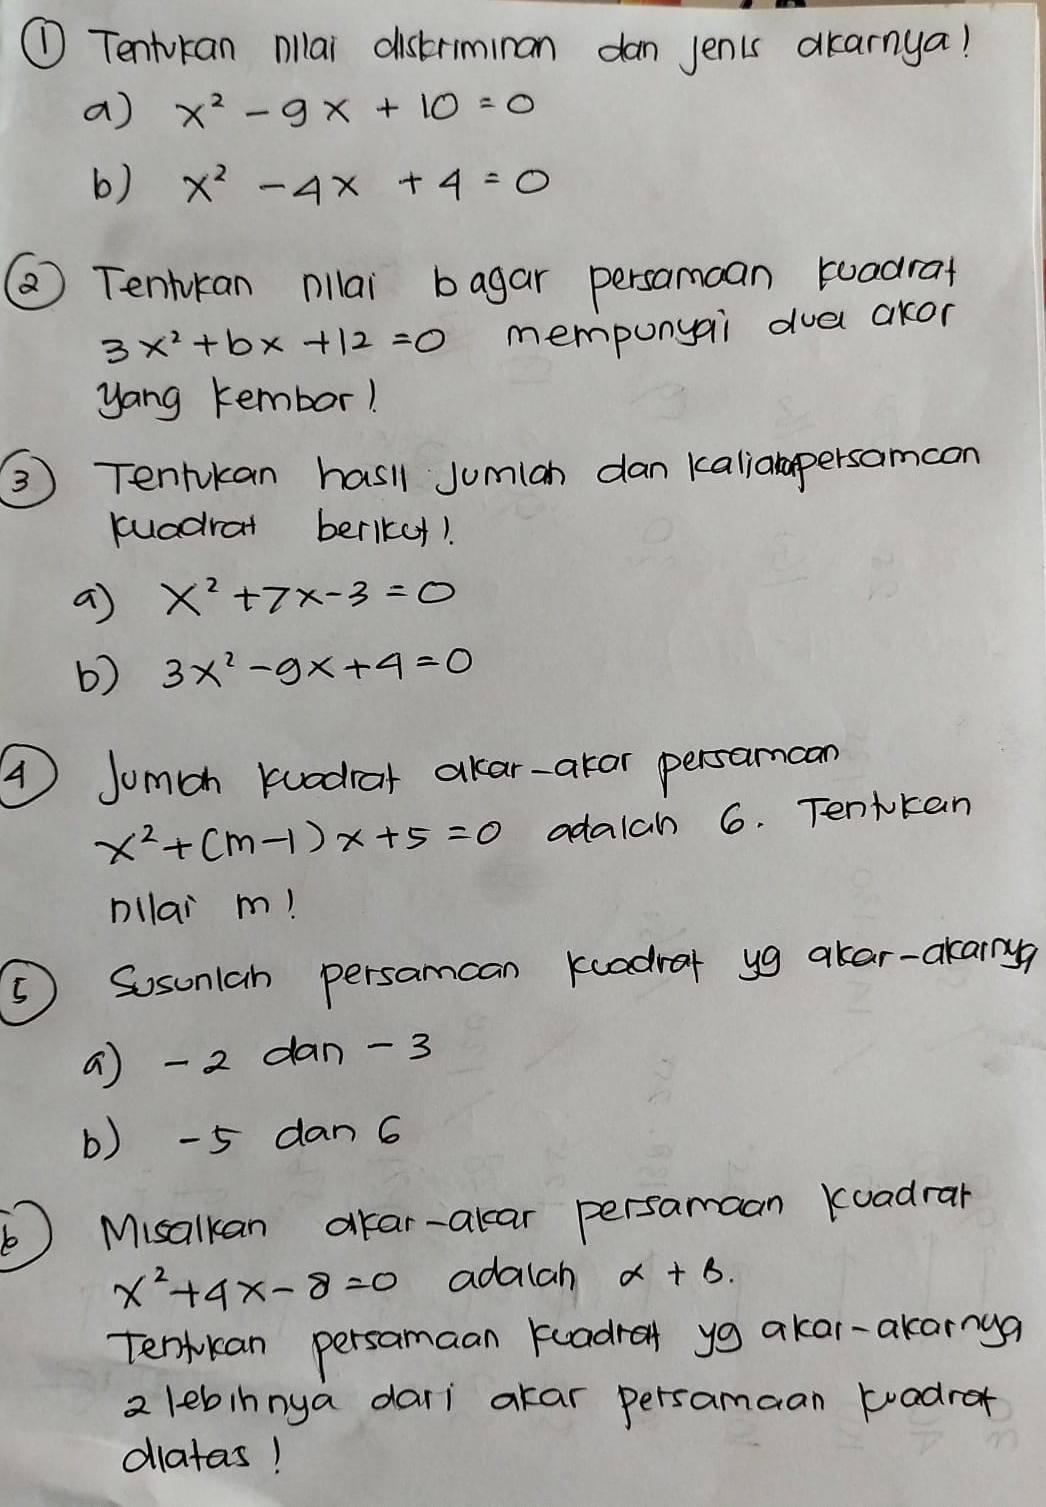 ① Tentukan nilai diskriminan dan jenis akarnya!
a) x² - 9x + 10 = 0
b) x² - 4x + 4 = 0
② Tentukan nilai b agar persamaan kuadrat
3x² + bx + 12 = 0 mempunyai dua akar
yang kembar!
③ Tentukan hasil Jumlah dan kalian persamaan
kuadrat berikut!
a) x² + 7x - 3 = 0
b) 3x² - 9x + 4 = 0
④ Jumlah kuadrat akar-akar persamaan
x² + (m-1)x + 5 = 0 adalah 6. Tentukan
nilai m!
⑤ Susunlah persamaan kuadrat yg akar-akarnya
a) -2 dan -3
b) -5 dan 6
⑥ Misalkan akar-akar persamaan kuadrat
x² + 4x - 8 = 0 adalah α + β.
Tentukan persamaan kuadrat yg akar-akarnya
2 lebihnya dari akar persamaan kuadrat
diatas!